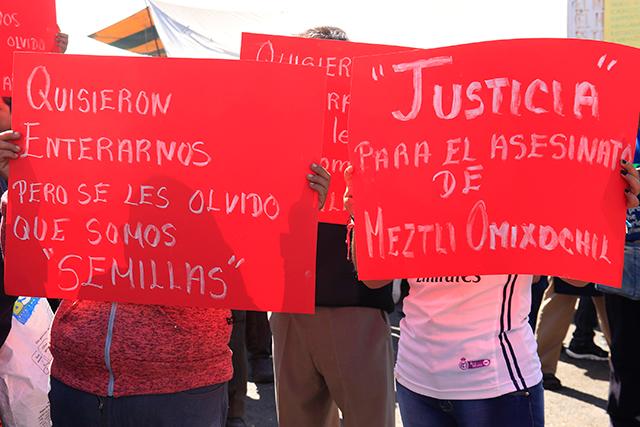 OS
OLVIDO
QUISIERON
ENTERARNOS
PERO SE LES OLVIDO
QUE SOMOS
"SEMILLAS"
QUISIER
"JUSTICIA"
PARA EL ASESINATO
DE
MEZTLI OMIXOCHIL
Emirates